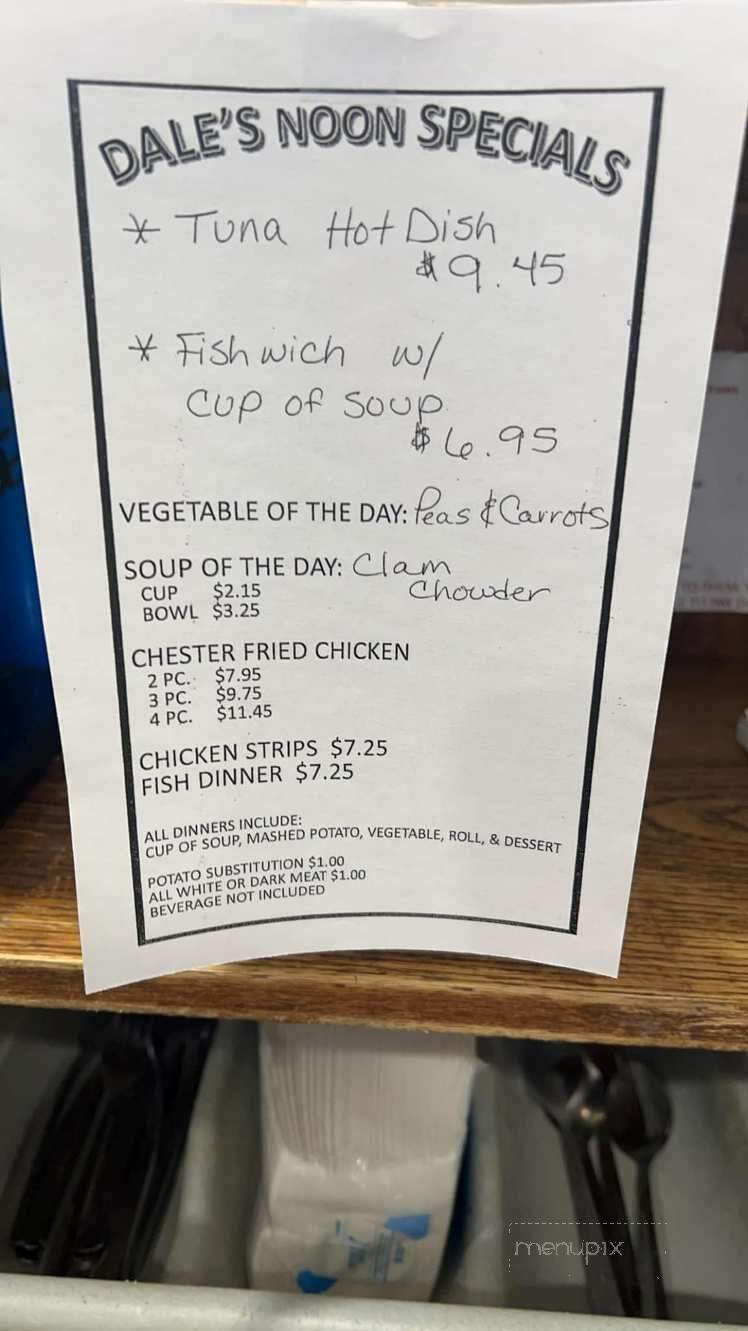 DALE'S NOON SPECIALS
* Tuna Hot Dish
$9.45
* Fishwich w/
Cup of Soup
$6.95
VEGETABLE OF THE DAY: Peas & Carrots
SOUP OF THE DAY: Clam
Chowder
CUP $2.15
BOWL $3.25
CHESTER FRIED CHICKEN
2 PC. $7.95
3 PC. $9.75
4 PC. $11.45
CHICKEN STRIPS $7.25
FISH DINNER $7.25
ALL DINNERS INCLUDE:
CUP OF SOUP, MASHED POTATO, VEGETABLE, ROLL, & DESSERT
POTATO SUBSTITUTION $1.00
ALL WHITE OR DARK MEAT $1.00
BEVERAGE NOT INCLUDED
menupix